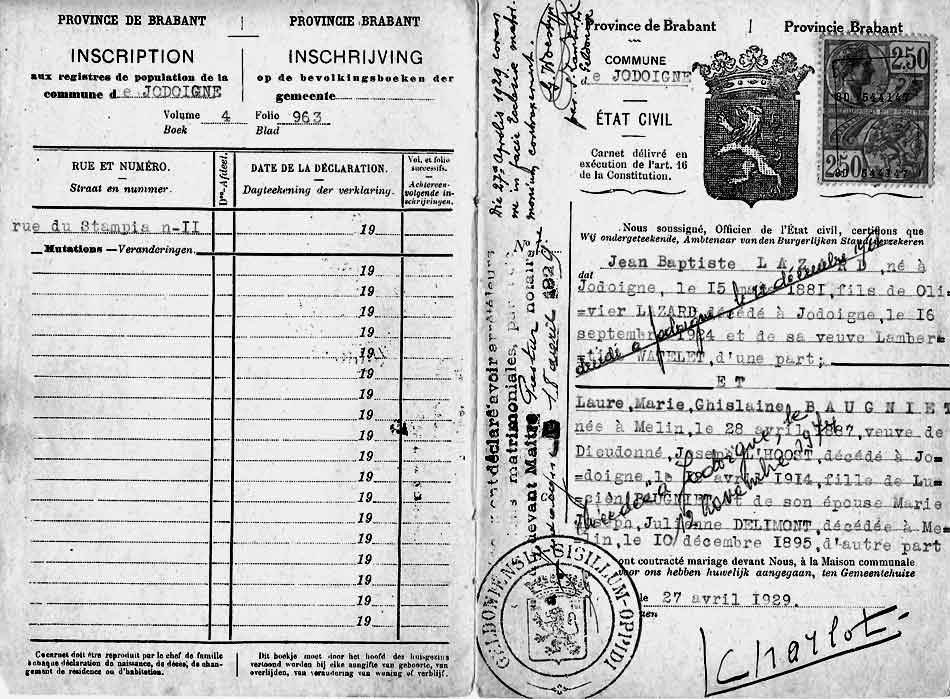 PROVINCE DE BRABANT
PROVINCIE BRABANT
INSCRIPTION
INSCHRIJVING
aux registres de population de la
commune de JODOIGNE
op de bevolkingsboeken der
gemeente
Volume 4 Folio 963
Boek Blad
RUE ET NUMÉRO.
Straat en nummer.
DATE DE LA DÉCLARATION.
Dagteekening der verklaring.
Vol. et folio
successifs.
Achtereen-
volgende in-
schrijvingen.
rue du Stampia n-II
19
Mutations — Veranderingen.
19
19
19
19
19
19
19
19
19
19
19
19
19
19
19
19
19
19
Ce carnet doit être reproduit par le chef de famille
à chaque déclaration de naissance, de décès, de chan-
gement de résidence ou d'habitation.
Dit boekje moet door het hoofd des huisgezins
vertoond worden bij elke aangifte van geboorte, van
overlijden, van verandering van woning of verblijf.
Die 27ª Aprilis 1929 coram
me in facie Ecclesiae matri-
devant Maître Pastur notaire
18 avril 1929.
Province de Brabant
Provincie Brabant
COMMUNE
de JODOIGNE
ÉTAT CIVIL
Carnet délivré en
exécution de l'art. 16
de la Constitution.
2.50
2.50
Nous soussigné, Officier de l'État civil, certifions que
Wij ondergeteekende, Ambtenaar van den Burgerlijken Stand verzekeren
dat
Jean Baptiste LAZARD, né à
Jodoigne, le 15 mars 1881, fils de Oli-
=vier LAZARD, décédé à Jodoigne, le 16
septembre 1924 et de sa veuve Lamber-
=tine WATELET, d'une part;
décédé à Jodoigne, le
ET
Laure, Marie, Ghislaine BAUGNIET
née à Melin, le 28 avril 1887, veuve de
Dieudonné, Joseph L'HOOST, décédé à Jo-
doigne, le avril 1914, fille de Lu-
cien BAUGNIET et de son épouse Marie
Joseph, Julienne DELIMONT, décédée à Me-
lin, le 10 décembre 1895, d'autre part
décédée à Jodoigne, le
novembre 1977
ont contracté mariage devant Nous, à la Maison communale
voor ons hebben huwelijk aangegaan, ten Gemeentehuize
le 27 avril 1929.
GELDONIENSIS-SIGILLUM-OPIDI
Charlot